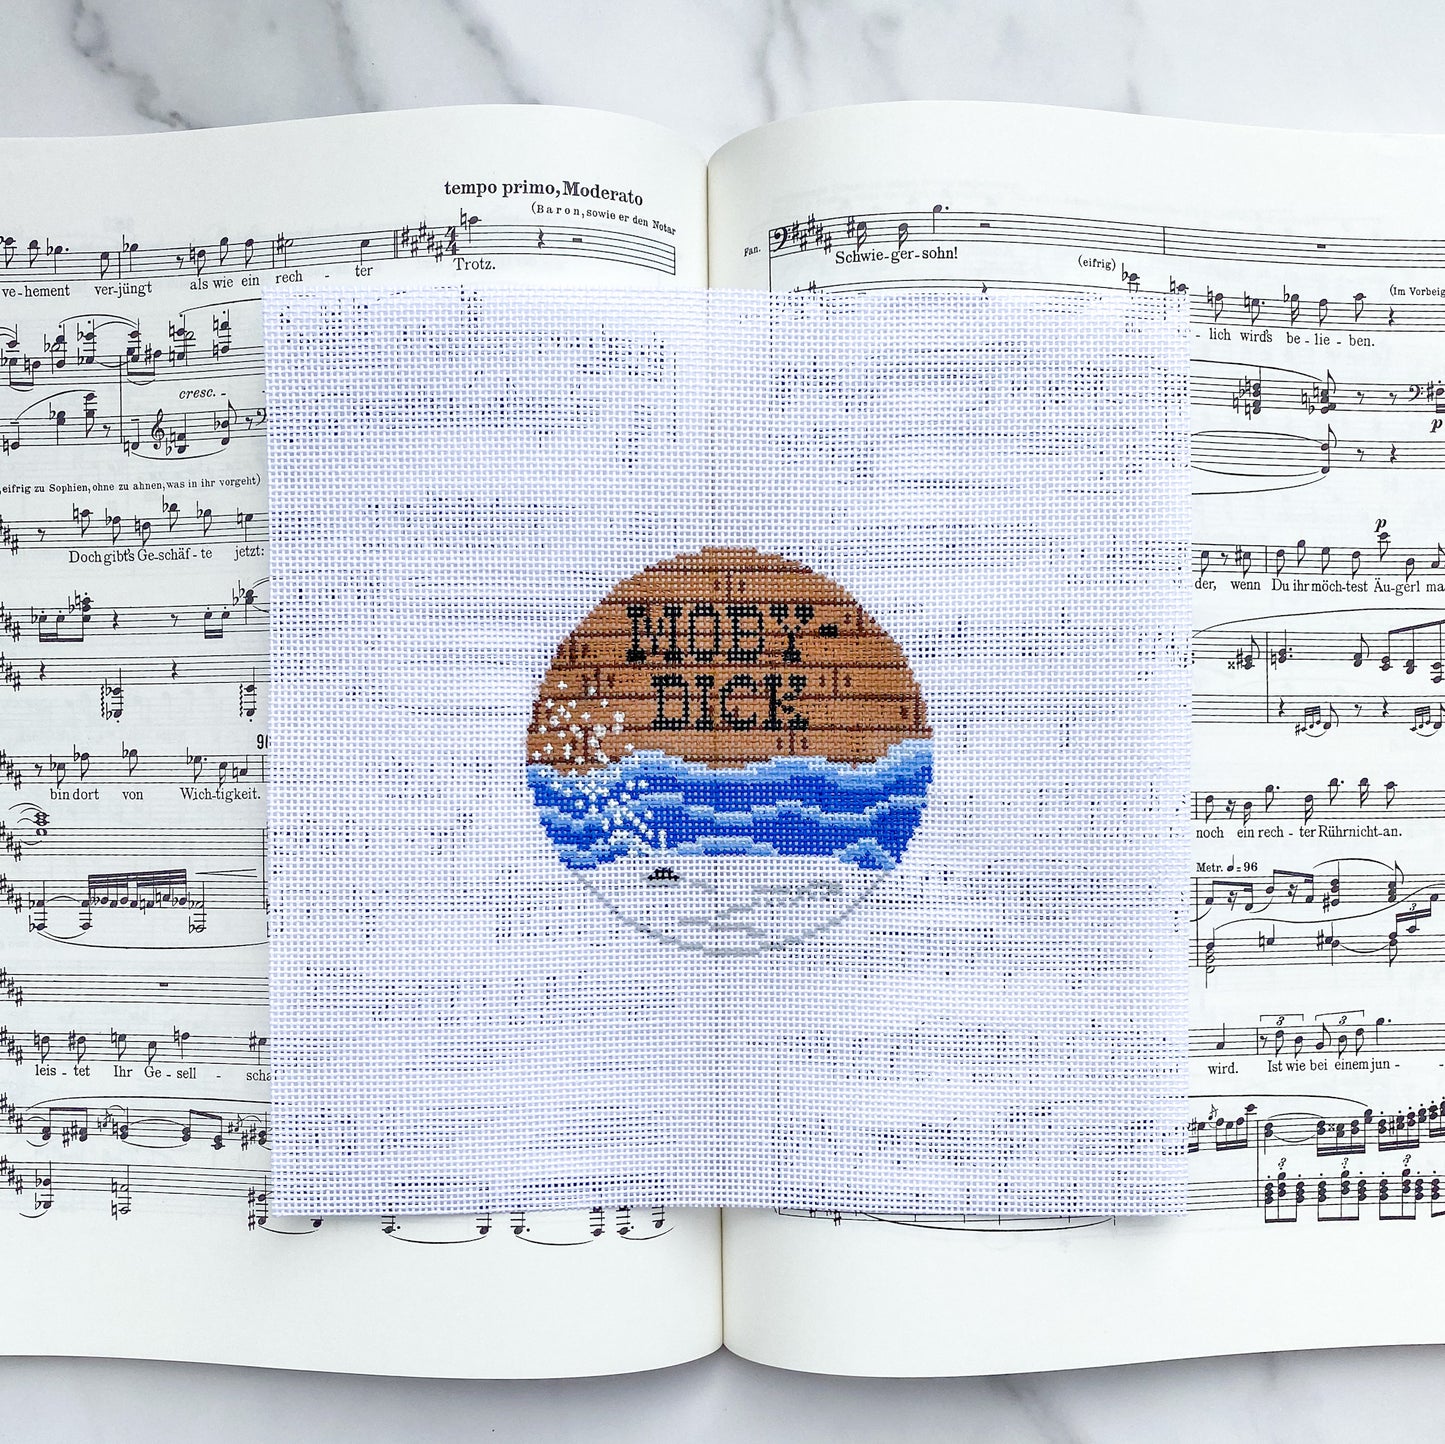 tempo primo, Moderato
(Baron, sowie er den Notar
ve-hement ver-jüngt als wie ein rech - ter Trotz.
cresc. -
eifrig zu Sophien, ohne zu ahnen, was in ihr vorgeht)
Doch gibt's Ge-schäf-te jetzt:
bin dort von Wich-tigkeit.
leis - tet Ihr Ge - sell - scha
MOBY-
DICK
Fan.
Schwie-ger-sohn!
(eifrig)
(Im Vorbeig
- lich wird's be - lie - ben.
p
p
der, wenn Du ihr möch-test Äu-gerl ma
noch ein rech - ter Rührnicht-an.
Metr. ♩= 96
3 3
wird. Ist wie bei einem jun - -
3 3 3